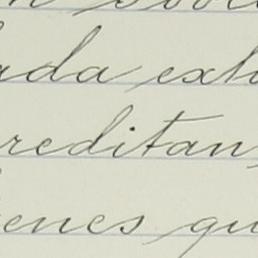 ada exh
reditan
enes qu